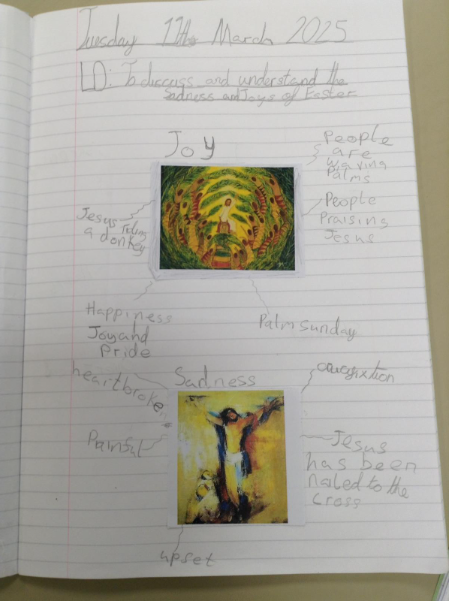 Tuesday 11th March 2025
LO: To discuss and understand the
Sadness and Joys of Easter
Joy
People
are
waving
Palms
Jesus riding
a donkey
People
Praising
Jesus
Happiness
Joy and
Pride
Palm Sunday
heartbroken
Sadness
Painful
Jesus
has been
nailed to the
cross
upset